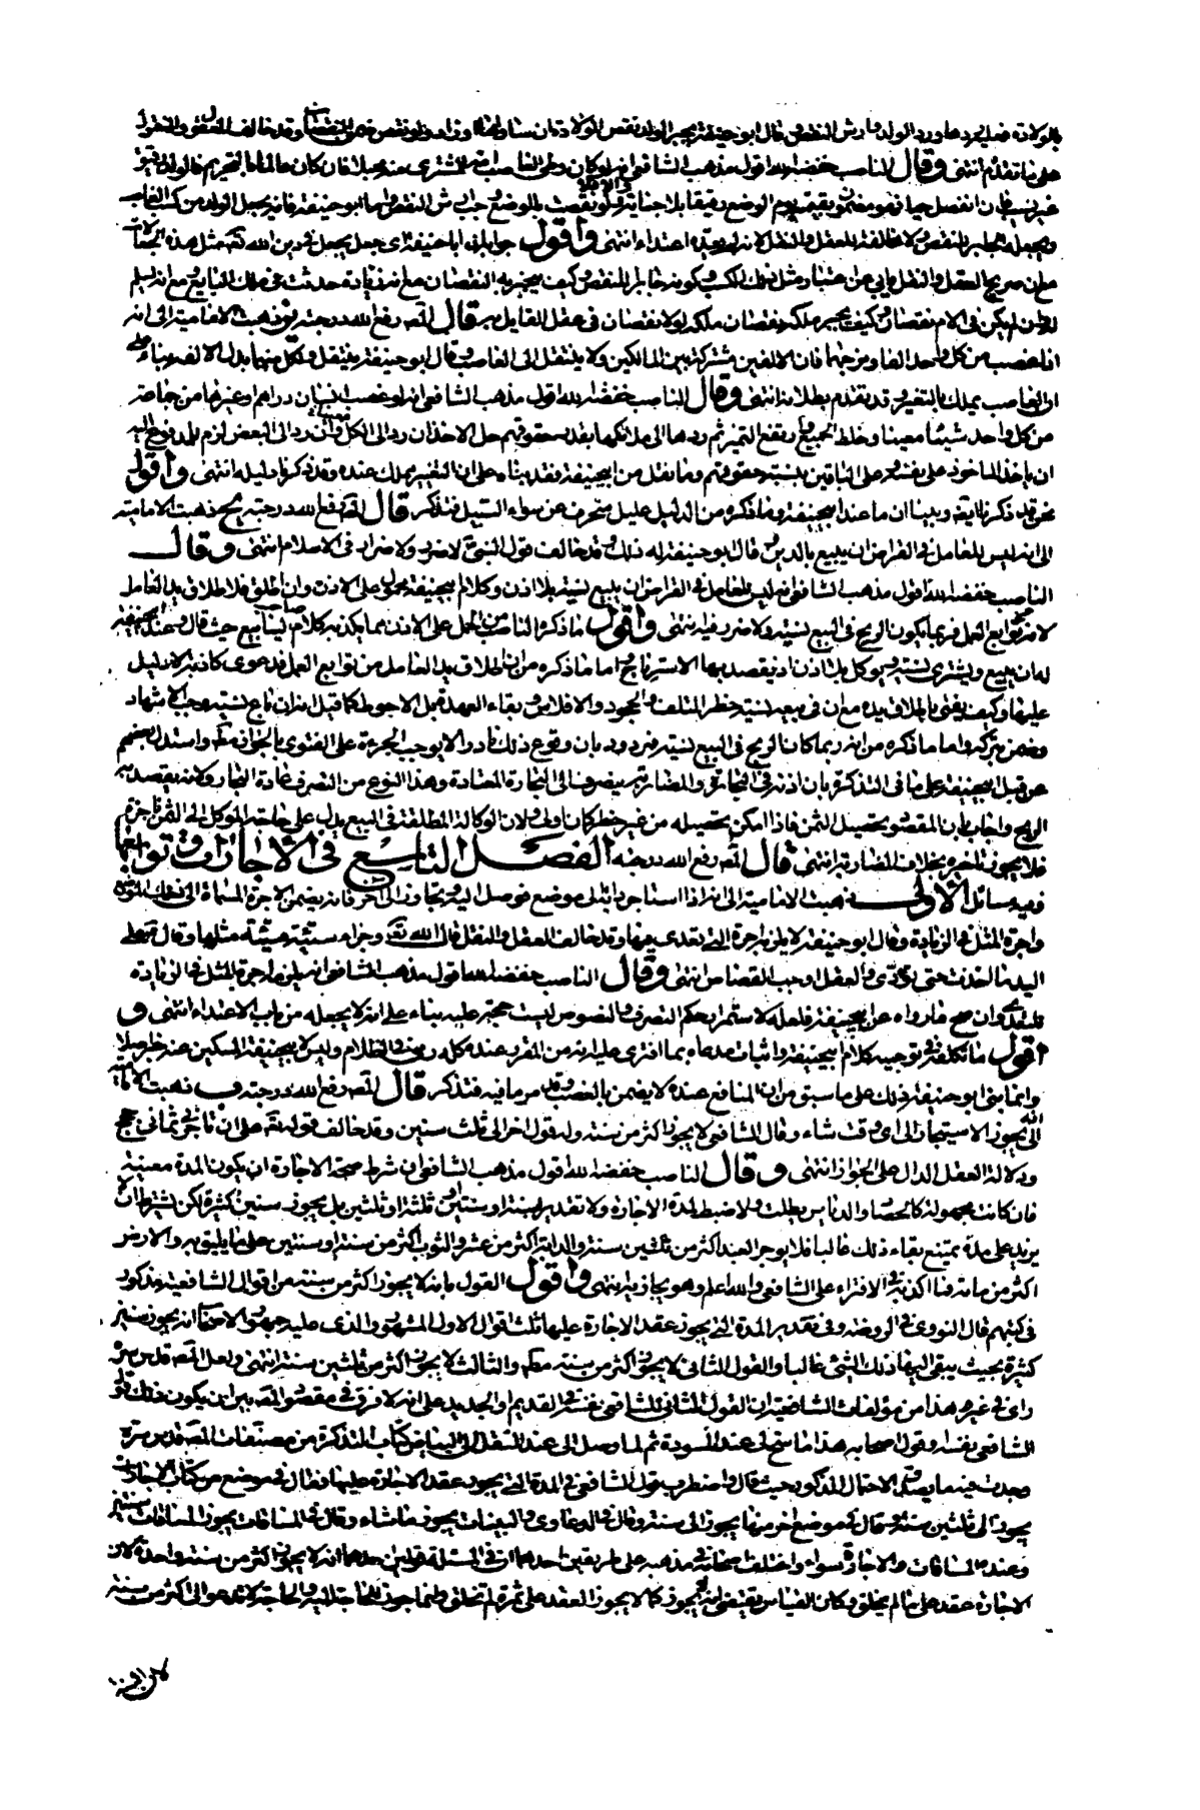 بالولادة فعليه ردها ورد الولد وارش النقص وقال ابو حنيفة يجبر الولد نقص الولادة فان ساواها او زاد وان نقص ضمن النقصان وقد خالف العقل والنقل
على ما تقدم انتهى وقال الناصب خفضه الله اقول مذهب الشافعي انه لو كان وطى الغاصب المشتري منه جهل فان كان عالما بالتحريم فالولد رقيق
غير نسيب فان انفصل حيا فهو مضمون بقيمته يوم الوضع رقيقا بلا جناية ولو نقصت بالوضع وجب ارش النقص واما ابو حنيفة فانه يجعل الولد من كسب الغاصب
ويجعله الجابر للنقص ولا مخالفة للعقل والنقل لانه لم يعده اعتداء انتهى واقول جوابه ان ابا حنيفة اي جعل يجعل في دين الله تعالى مثل هذه الجهالات
مع ان صريح العقل والنقل يابى عن اعتبار مثل ذلك الكسب وكونه جابرا للنقص وكيف يجبر به النقصان مع انه زيادة حدثت في ملك المالك مع انه لم يسلم
لو لم يكن في الام نقصان وكيف يجبر ملكه نقصان ملكه لولا نقصان في عقل القايل به قال المص رفع الله درجته ذهبت الامامية الى انه
اذا غصب من كل واحد الفا ومزجهما فان الالفين مشتركة بين المالكين ولا ينتقل الى الغاصب وقال ابو حنيفة ينتقل ولكل منهما بدل الالف بناء على
ان الغاصب يملك بالتغير وقد تقدم بطلانه انتهى وقال الناصب خفضه الله اقول مذهب الشافعي انه لو غصب انسان دراهم وغيرها من جماعة
من كل واحد شيئا معينا وخلط الجميع وارتفع التميز ثم ردها الى ملاكها بقدر حقوقهم حل الاخذ ان رد الى الكل وان رد الى البعض لزم المدفوع اليه
ان ياخذ المأخوذ على نفسه وعلى الباقين بنسبة حقوقهم وما نقل من ابي حنيفة فقد بناه على ان التغيير مملك عنده وقد ذكرنا دليله انتهى واقول
نحن قد ذكرنا فيه وبينا ان ما عند ابي حنيفة وما ذكره من الدليل عليل منحرف عن سواء السبيل فتذكر قال المص رفع الله درجته ذهبت الامامية
الى انه ليس للعامل في القراض ان يبيع بالدين وقال ابو حنيفة له ذلك وقد خالف قول النبي لا ضرر ولا ضرار في الاسلام انتهى وقال
الناصب خفضه الله اقول مذهب الشافعي انه ليس للعامل في القراض ان يبيع نسية بلا اذن وكلام ابي حنيفة محمول على الاذن وان اطلق فلاطلاق يد العامل
لانه من توابع العمل فربما يكون الربح في البيع نسية ولا ضرر فيه انتهى واقول ما ذكره الناصب من الحمل على الاذن مما يكذبه كلام صاحب الينابيع حيث قال وعند ابي حنيفة
له ان يبيع ويشتري نسية ويوكل بلا اذن اذ يقصد بها الاسترباح واما ما ذكره من ان اطلاق يد العامل من توابع العمل فدعوى كاذبة لا دليل
عليها وكيف يفتى باطلاق يده مع ان في بيعه نسية خطر المتلف والجحود والافلاس وبقاء العهدة قبل الاحوط كما قيل انه ان باع نسية وجب الاشهاد
وضمن بتركه واما ما ذكره من انه ربما كان الربح في البيع نسية فمردود بان وقوع ذلك نادر الا يوجب الجرءة على الفتوى بالجواز مط واستدل بعضهم
من قبل ابي حنيفة على ما في التذكرة بان اذنه في التجارة والمضاربة ينصرف الى التجارة المعتادة وهذا النوع من التصرف عادة التجار ولانه يقصد به
الربح واجاب بان المقصود تحصيل الثمن فاذا امكن تحصيله من غير خطر كان اولى ولان الوكالة المطلقة في البيع يدل على حاجة الموكل الى الثمن ناجزا
فلا يجوز تاخيره بخلاف المضاربة انتهى قال المص رفع الله درجته الفصل التاسع في الاجارات وتوابعها
وفيه مسائل الاولى ذهبت الامامية الى انه اذا استاجر دابة الى موضع فوصل اليه وتجاوز الى آخر فانه يضمن الاجرة المسماة الى ذلك الموضع
واجرة المثل في الزيادة وقال ابو حنيفة لا يلزمه اجرة التي تعدى فيها وقد خالف العقل والنقل قال الله تعالى وجزاء سيئة سيئة مثلها وقال ص على
اليد ما اخذت حتى تؤدى والعقل اوجب القصاص انتهى وقال الناصب خفضه الله اقول مذهب الشافعي انه يلزمه اجرة المثل في الزيادة
وان صح ما رواه عن ابي حنيفة فلعله لاستمراره بحكم التصرف والنصوص ليست حجة عليه بناء على انه لا يجعله من باب الاعتداء انتهى و
اقول ما تكلفه في توجيه كلام ابي حنيفة واثبات مدعاه بما افترى عليه انه من المقرر عنده كله رمي في الظلام وليس لابي حنيفة المسكين عنه خبر اصلا
وانما بنى ابو حنيفة ذلك على ما سبق من ان المنافع عنده لا يضمن بالغصب وقد مر ما فيه فتذكر قال المص رفع الله درجته ذهبت الامامية
الى انه يجوز الاستيجار الى اي وقت شاء وقال الشافعي لا يجوز اكثر من سنة وله قول اخر الى ثلث سنين وقد خالف قوله تعالى على ان تاجرني ثماني حجج
ودلالة العقل الدال على الجواز انتهى وقال الناصب خفضه الله اقول مذهب الشافعي ان شرط صحة الاجارة ان يكون المدة معينة
فان كانت مجهولة كالحصاد والدياس بطلت ولا ضبط لمدة الاجارة ولا تقدير بسنة او سنتين او ثلثة او ثلثين بل يجوز سنين كثيرة لكن بشرط ان لا
يزيد على مدة يمتنع بقاء ذلك غالبا فلا يوجر العبد اكثر من ثلثين سنة والدابة اكثر من عشر والثوب اكثر من سنة او سنتين على ما يليق به والارض
اكثر من مائة فما اكذبه في الافتراء على الشافعي والله اعلم وهو يجازيه انتهى واقول القول بانه لا يجوز اكثر من سنة من اقوال الشافعية مذكور
في كتبهم قال النووي في الروضة وفي تقدير المدة التي يجوز عقد الاجارة عليها ثلث اقوال الاول المشهور والذي عليه جمهور الاصحاب انه يجوز سنين
كثيرة بحيث يبقى اليها ذلك الشئ غالبا والقول الثاني لا يجوز اكثر من سنة مط والثالث لا يجوز اكثر من ثلثين سنة انتهى ولعل المص قدس سره
راى في غير هذا من مؤلفات الشافعية ان القول الثاني للشافعي نفسه في القديم والجديد على انه لا فرق في مقصود المص بين ان يكون ذلك قول
الشافعي نفسه وقول اصحابه هذا ما سنح لى عند المسودة ثم لما وصل الى عند النقل الى البياض كتاب التذكرة من مصنفات المص قدس سره
وجدت فيه ما يصدق الاحتمال المذكور حيث قال واضطرب قول الشافعي في المدة التي يجوز عقد الاجارة عليها فقال في موضع من كتاب الاجارات
يجوز الى ثلثين سنة وقال في موضع اخر منها يجوز الى سنة وقال في الدعاوى والبينات يجوز ما شاء وقال في المساقات يجوز المساقات سنين
وعنده المساقات والاجارة سواء واختلف اصحابه في مذهبه على طريقين احدهما ان في المسئلة قولين احدهما انه لا يجوز اكثر من سنة واحدة لان
الاجارة عقد على ما لم يخلق وكان القياس يقتضي ان لا يجوز كما لا يجوز العقد على ثمرة لم تخلق وانما جوز للحاجة اليه والحاجة لا تدعو الى اكثر من سنة